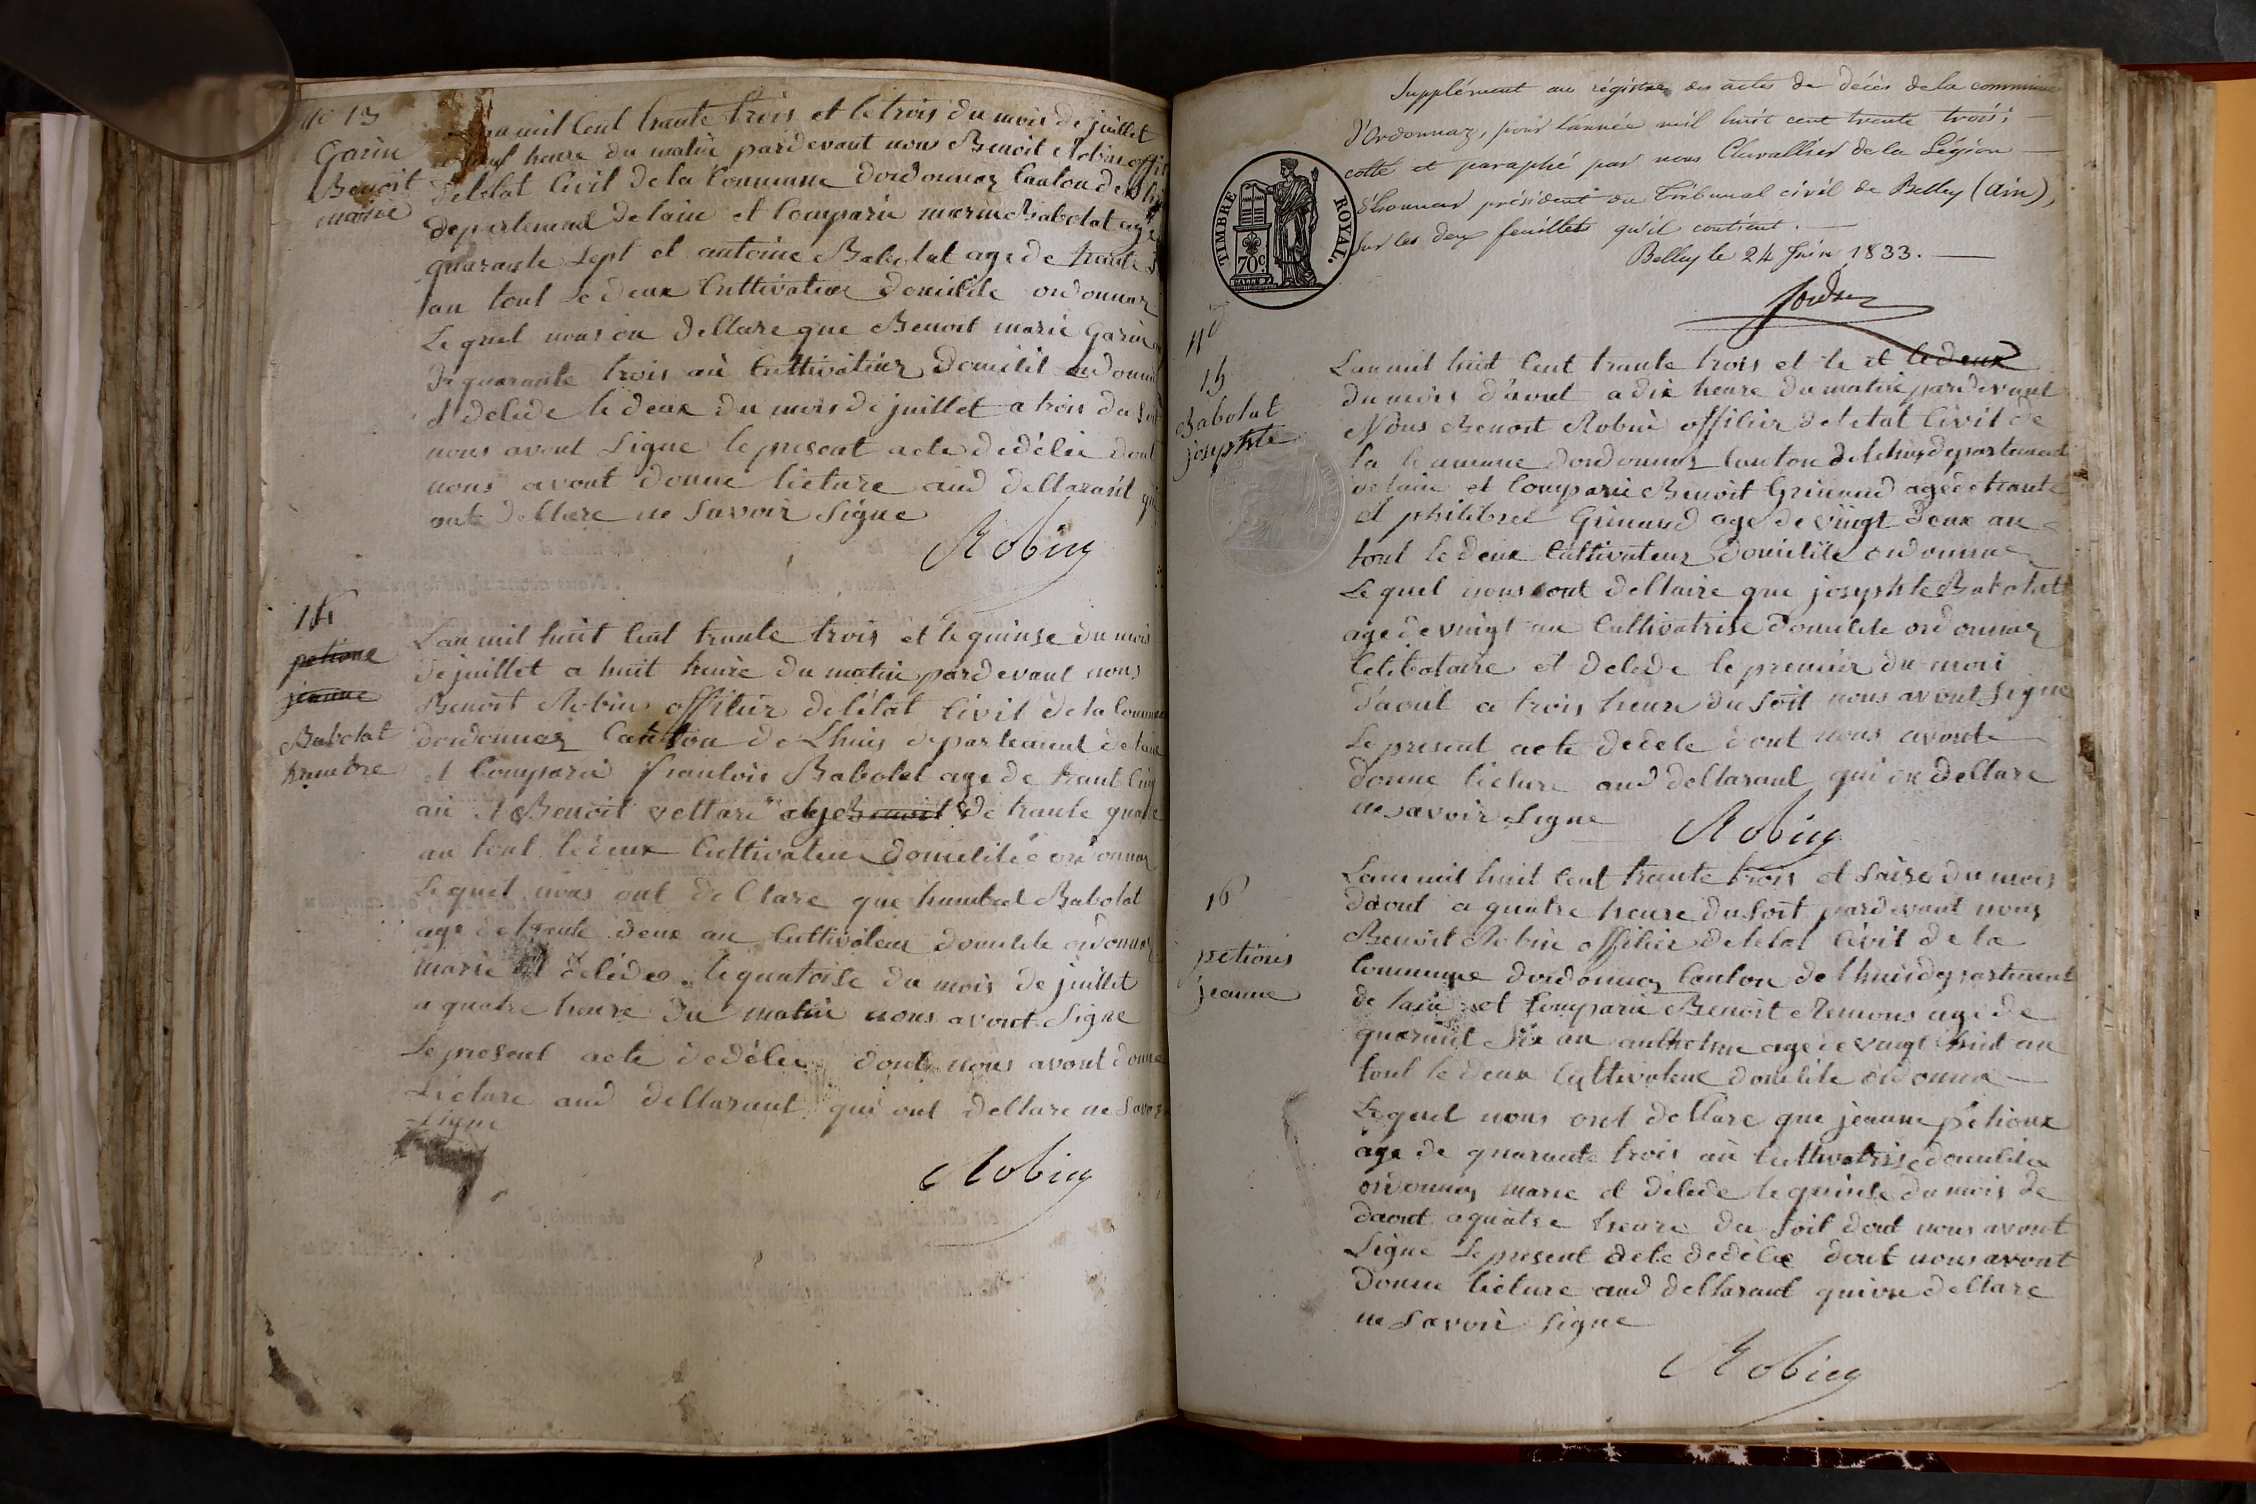 No 13
Garin
Benoit
marie
mil cent trante trois et le trois du mois de juillet
heure du matin pardevant nous Benoit Robin
deletat civil de la Commune dordonnaz Canton de
departement delain et Comparu Babolat
quarante sept et antoine Babolat age de trante
an tout le deux Cultivateur domicilie ordonnaz
Le quel nous on dellare que Benoit marie Garin
de quarante trois an Cultivateur domicilié
et delede le deux du mois de juillet a trois du
nous avont Signe le present acte dedélée dont
nous avont donne licture aud dellarant qui
onte dellare ne Savoir Signe
Robin
14
petione
jeanne
Babolat
Lan mil huit Cent trante trois et le quinse du mois
de juillet a huit heure du matin pardevant nous
Benoit Robin offilier delétat Civil de la Commune
dordonnaz Canton de Lhuis departement delain
et Comparu franlois Babolat age de trant
an et Benoit vettard age Benoit de trante
an tout le deux Cultivateur domicilie ordonnaz
Le quel nous ont dellare que humbert Babolat
age de trante deux an Cultivateur domilile ordonnaz
marie et delédee le quatorse du mois de juillet
a quatre heure du matin nous avont Signe
Le present acte dedélee dont nous avont donne
Licture aud dellarant qui ont dellare ne Savoir
Signe
Robin
Supplément au régistre des actes de décès de la commune
d'Ordonnaz, pour l'année mil huit cent trente trois;
cotté et paraphé par nous Chevallier de la Légion
d'honneur président du Tribunal civil de Belley (Ain),
sur les deux feuillets qu'il contient.
Belley le 24 Juin 1833.
TIMBRE ROYAL.
70c.
No
15
Babolat
josephte
Lan mil huit Cent trante trois et le et le deux
du mois d'aout a dix heure du matin pardevant
Nous Benoit Robin offilier deletat Civil de
la Commune dordonnaz Canton de departement
delain et Comparu Benoit Grinand age de trante
et philibert Grinand age de vingt deux an
tout le deux Cultivateur domicilie ordonnaz
Le quel nous ont dellaire que josephte Babolat
age de vingt an Cultivatrise domilile ordonnaz
Celibataire et delede le premier du mois
d'aout a trois heure du soit nous avont Signe
Le present acte dedele dont nous avonte
donne licture aud dellarant qui on dellare
ne savoir Signe
Robin
16
petione
jeanne
Lan mil huit Cent trante trois et Saise du mois
daout a quatre heure du soit pardevant nous
Benoit Robin offilier deletat Civil de la
Commune dordonnaz Canton de lhuis departement
de lain et Comparu Benoit age de
quarant Six an age de vingt huit an
tout le deux Cultivateur domilile ordonnaz
Le quel nous ont dellare que jeanne petione
age de quarante trois an Cultivatrise domilile
ordonnaz marie et delede le quinse du mois de
daout a quatre heure du soit dont nous avont
Signe Le present acte dedélée dont nous avont
donne licture aud dellarant qui on dellare
ne Savoir Signe
Robin